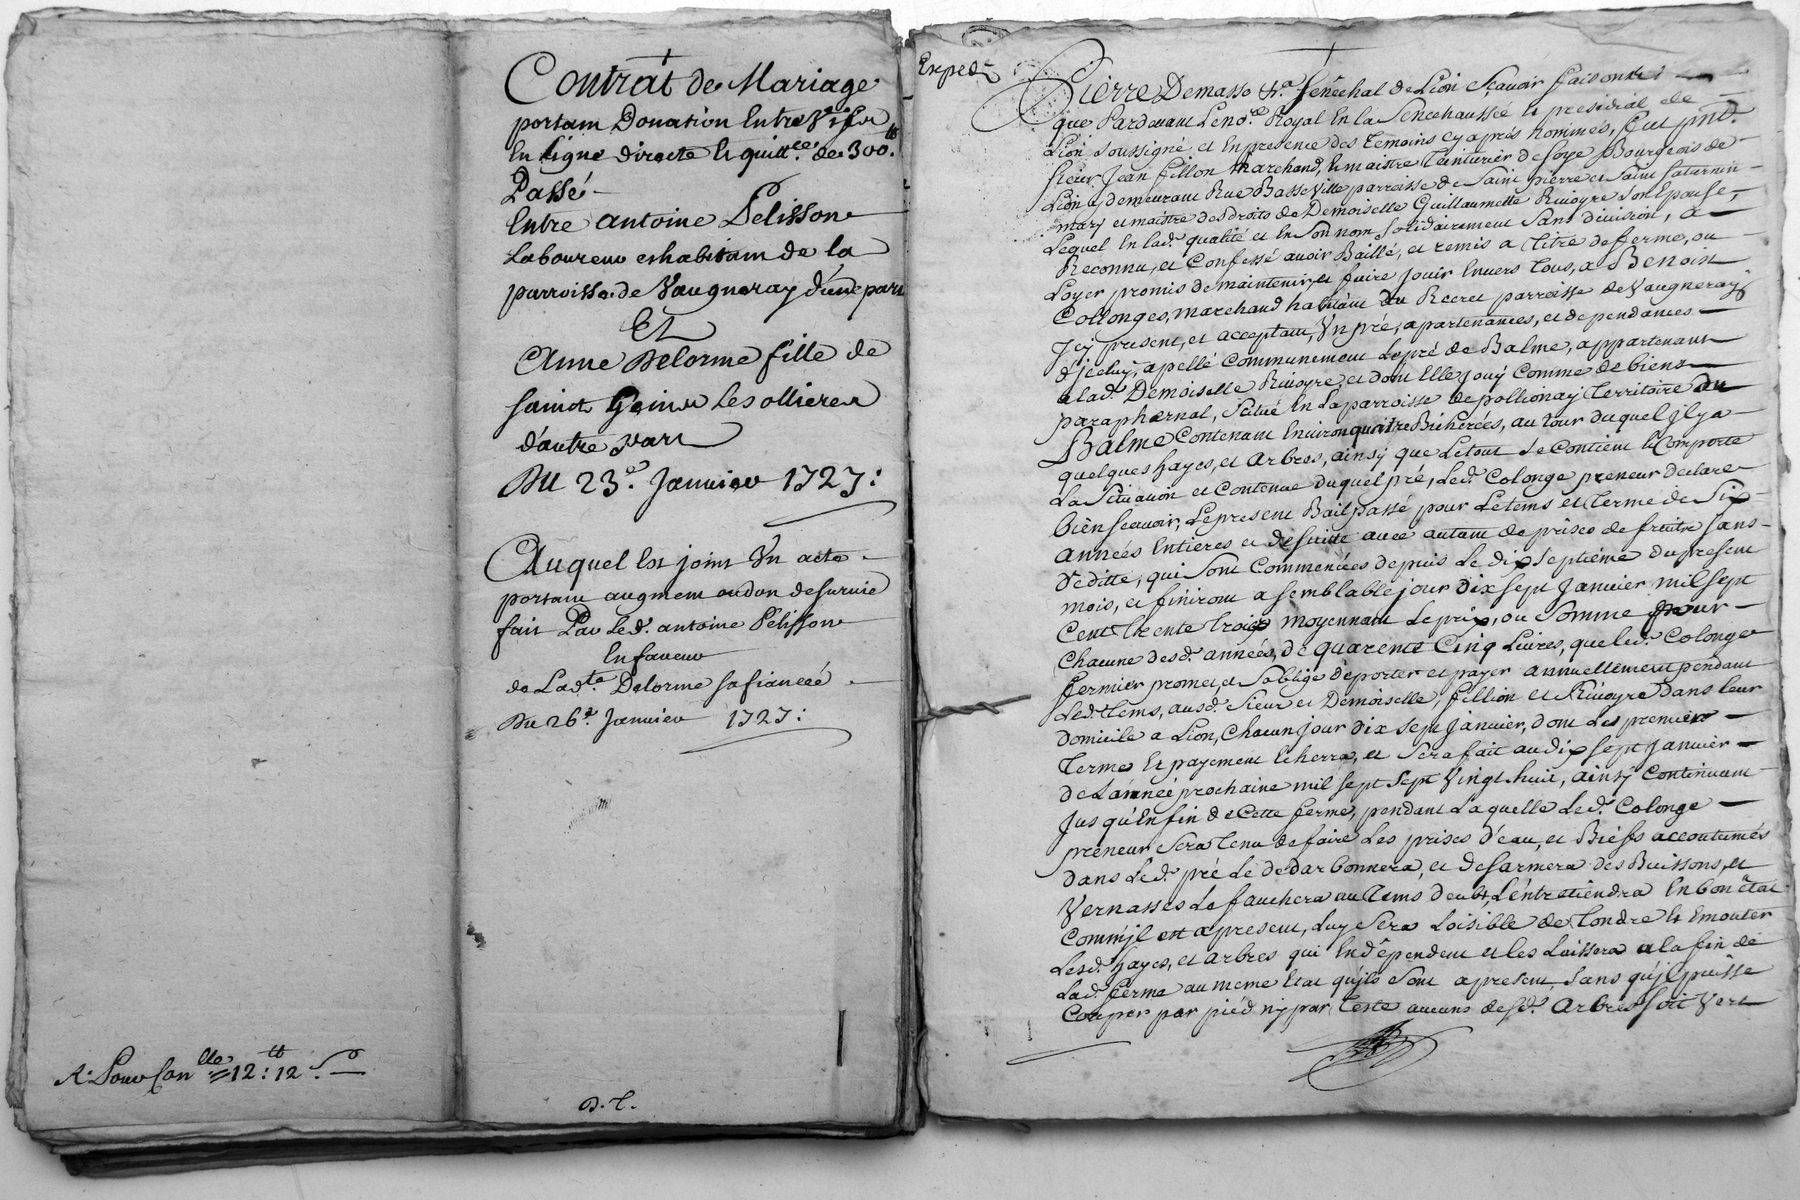 Contrat de Mariage
portant Donation Entre Vifs
En ligne directe Et quitt.ce de 300.tt
Passé
Entre antoine Pelisson
Laboureur et habitant de la
parroisse de Vaugneray d'une part
Et
Anne Delorme fille de
sainct Genis Les ollieres
d'autre part
Du 23.e Janvier 1727:
Auquel Est joint Un acte
portant augment ou don de survie
fait Par Led. antoine Pelisson
En faveur
de Lad.te Delorme sa fiancéé
Du 26.e Janvier 1727:
12: 12
D.T.
Exped.
Pierre Demasso &.a Senéchal de Lion Sçavoir faisons
que Pardevant Le no.re Royal En la Senechausseé Et presidial de
Lion soussigné et En presence des Temoins cy après nommés, fut pnt.
sieur Jean fillon Marchand, Et maistre Teinturier de soye Bourgeois de
Lion y demeurant Rue Basse Ville parroisse de Saint pierre et Saint Saturnin
mary et maistre des droits de Demoiselle Guillaumette Rivoyre son Epouse,
Lequel En lad. qualité et En Son nom Solidairement Sans division, a
Reconnu, et Confessé avoir Baillé, et remis a Titre de ferme, ou
Loyer promis de maintenir, et faire jouir Envers Tous, a Benoist
Collonges, marchand habitant du Recret parroisse de Vaugneray
Jcy present, et acceptant, Un pré, apartenances, et dependances
d'jceluy, apellé Communement Le pré de Balme, appartenant
a lad. Demoiselle Rivoyre, et dont Elle jouy Comme de biens
paraphernal, Scitué En La parroisse de pollionay Territoire du
Balme Contenant Environ quatre Bicherées, au tour duquel Jl y a
quelques hayes, et arbres, ainsy que Le tout Se Contient et Comporte
La Situation et Contenue duquel pré, Led. Colonge preneur declare
bien Scavoir, Le present Bail passé pour Le tems et Terme de Six
années Entieres et de suitte avec autant de prises de fruits sans
Deditte, qui Sont Commencées depuis Le dix Septiéme du present
mois, et finiront a semblable jour dix sept Janvier mil sept
Cent Trente Trois moyennant Le prix, ou Somme pour
Chacune desd. années, de quarente Cinq Livres, que led. Colonge
fermier promet, et S'oblige de porter et payer annuellement pendant
Led. Tems, ausd. Sieur et Demoiselle, fillion et Rivoyre dans leur
domicile a Lion, Chacun jour dix sept Janvier, dont Les premiers
Termes Et payement Echerra, et Sera fait au dix sept Janvier
de L'année prochaine mil sept Sept Vingt huit, ainsy Continuant
Jusqu'En fin de Cette ferme, pendant Laquelle Led. Colonge
preneur Sera Tenu de faire Les prises d'eau, et Biefs accoutumés
dans Led. pré Le dedarbonnera, et desarmera des Buissons, et
Vernasses Le fauchera au Tems deubt, L'entretiendra En bon état
Comm'jl est a present, Luy Sera Loisible de Tondre Et Emouter
Lesd. hayes, et arbres qui En dépendent et les Laissera a la fin de
Lad. ferme au meme Etat qu'jls Sont a present, Sans qu'jl puisse
Couper par pied ny par Teste aucuns desd. Arbres Soit Vert